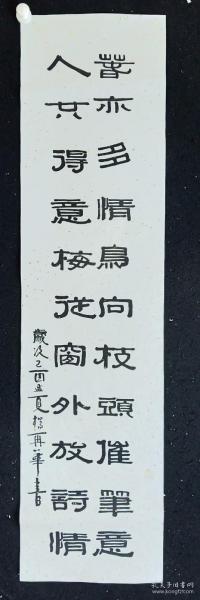 春亦多情鳥向枝頭催筆意
人其得意梅從窗外放詩情
歲次乙酉夏再華書